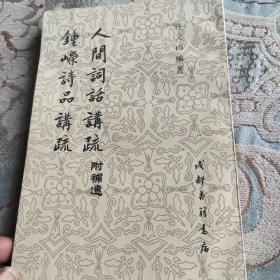 许文雨编著
人間詞話講疏附補遺
鍾嶸詩品講疏
成都古籍書店